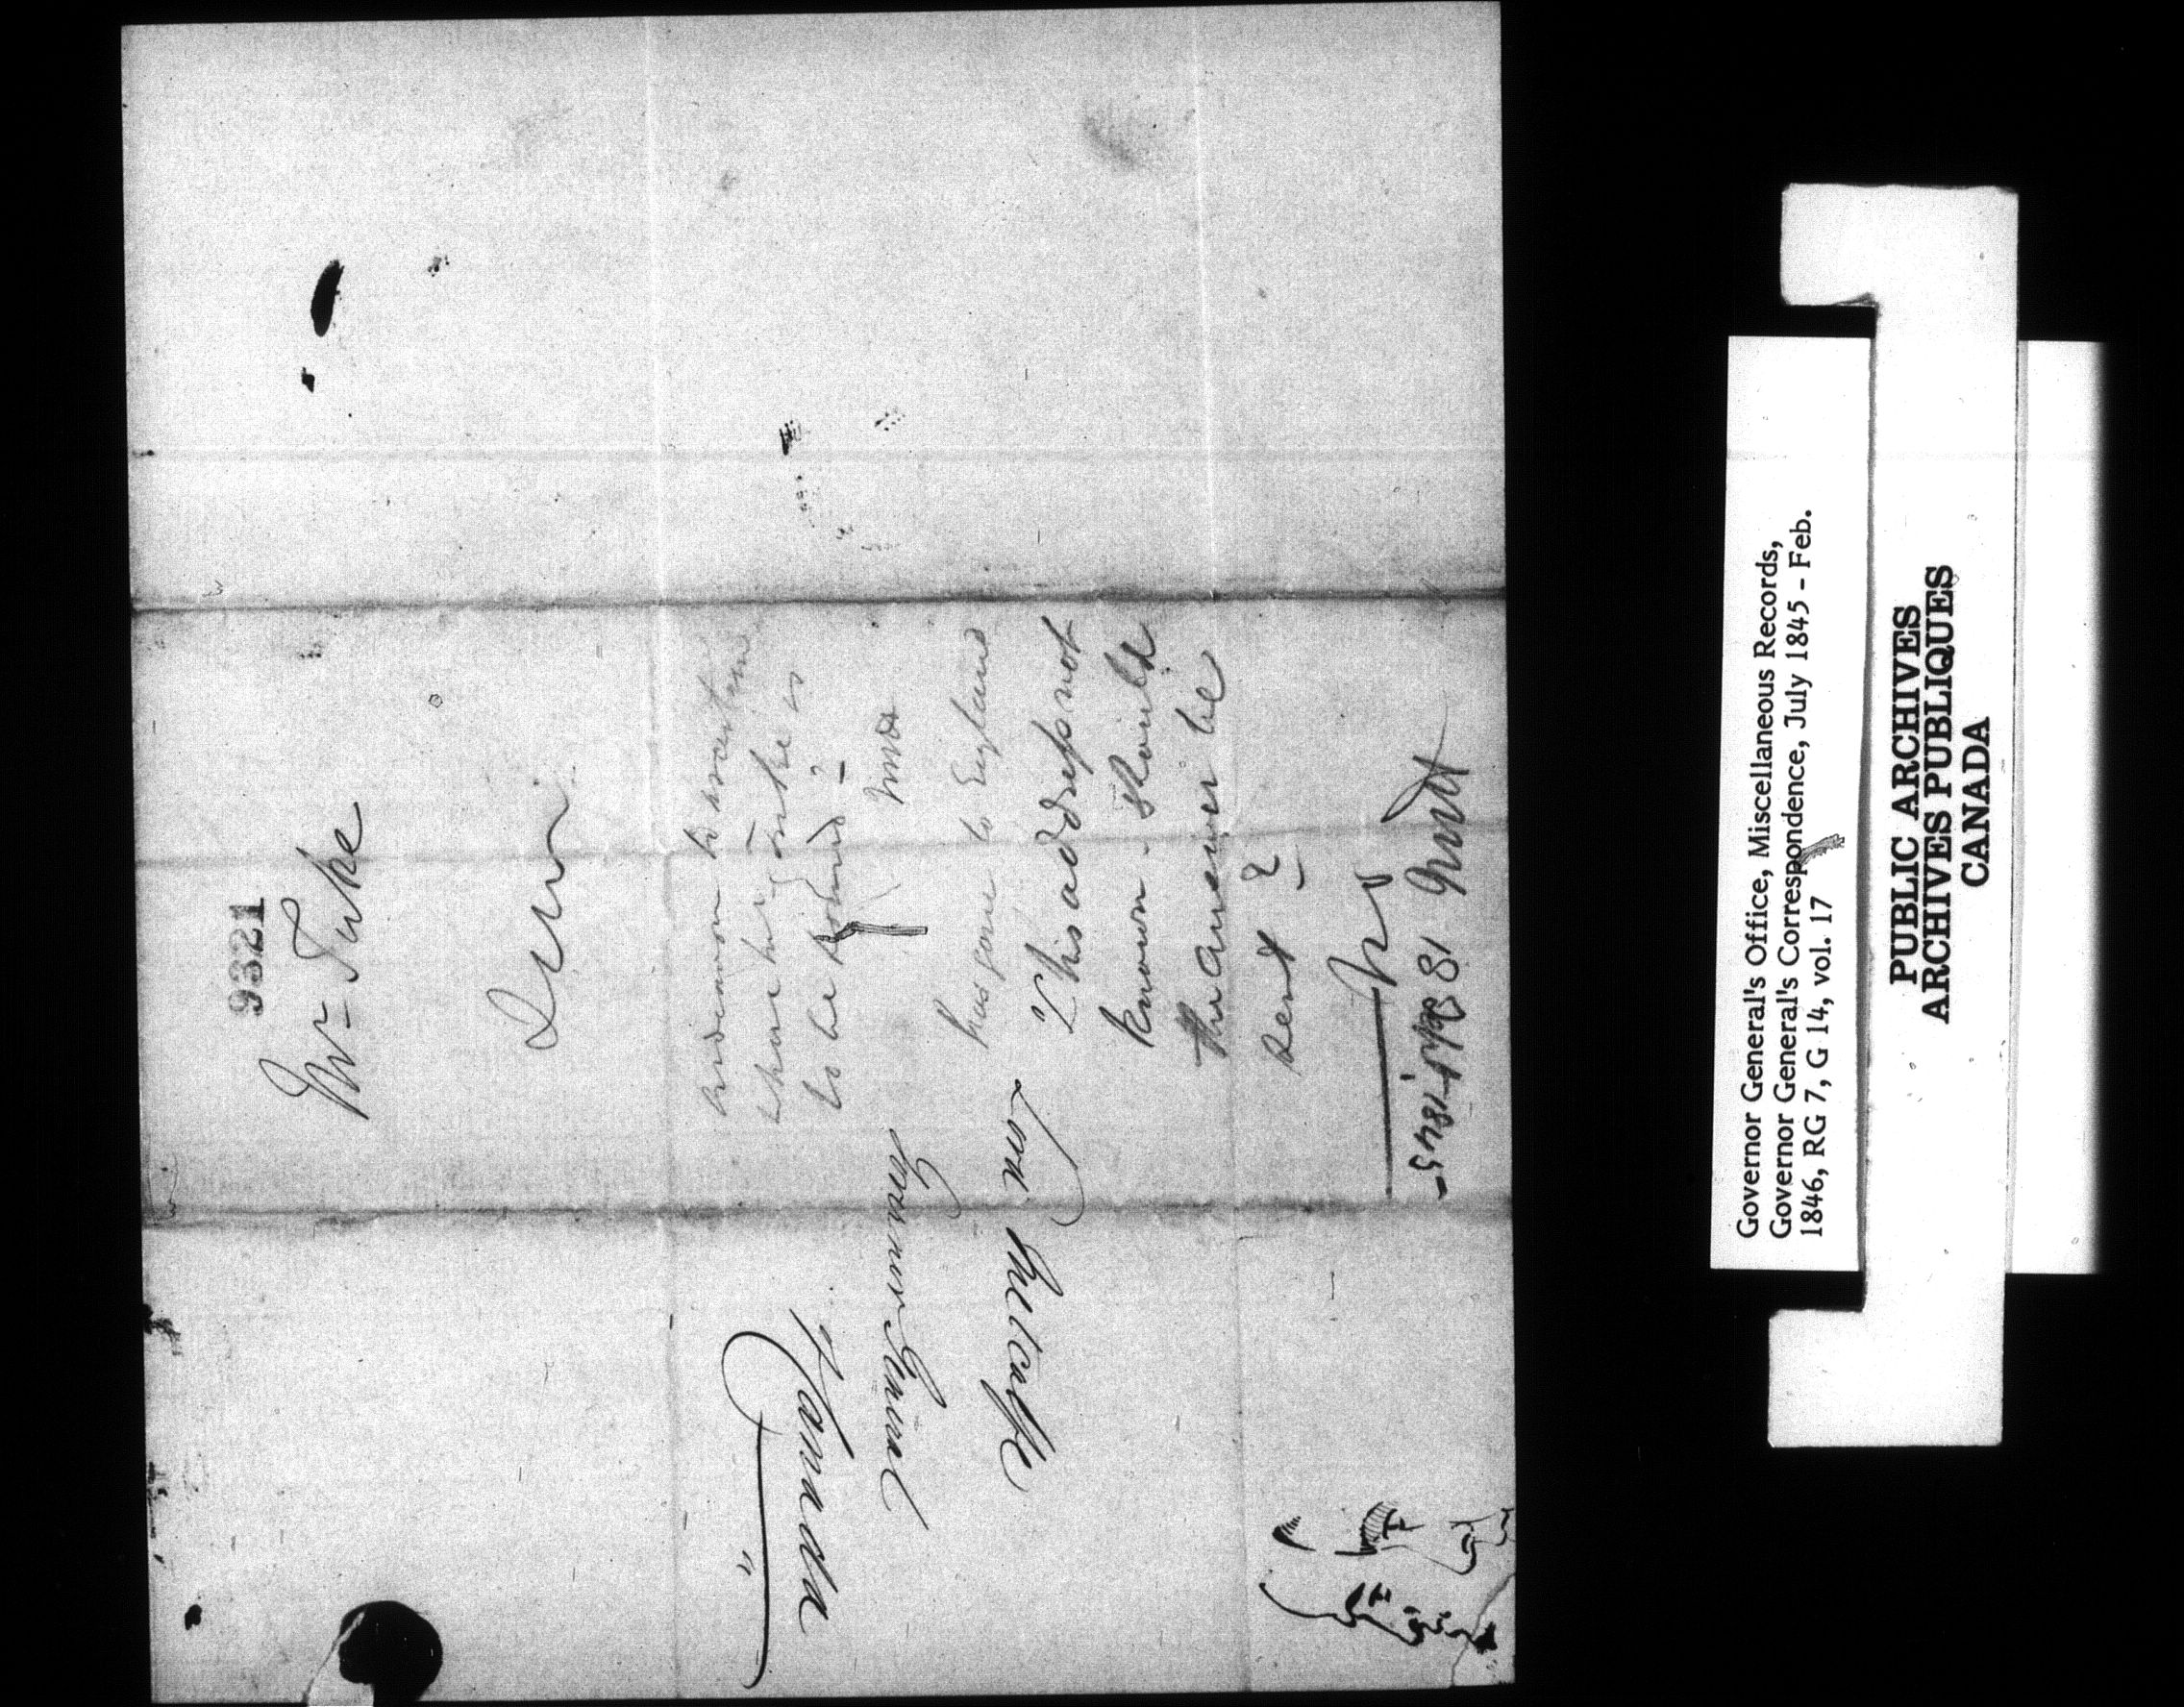 9321
Mr Tuke
Endeavour to ascertain
where Mr Tuke is
to be found?
has gone to England
& his address not
known - should
the answer be
sent?
No
18 Sept 1845-
Lord Metcalfe
Governor General
Canada
Governor General's Office, Miscellaneous Records,
Governor General's Correspondence, July 1845 - Feb.
1846, RG 7, G 14, vol. 17
PUBLIC ARCHIVES
ARCHIVES PUBLIQUES
CANADA